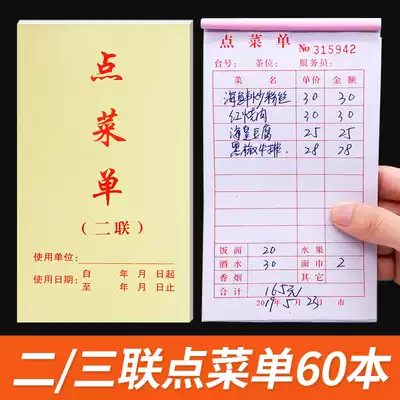 点
菜
单
（二联）
使用单位：
使用日期：
自 年 月 日起
至 年 月 日止
点 菜 单
No 315942
台号： 茶位： 服务员：
菜 名 单价 金额
海鲜炒粉丝 30 30
红烧肉 30 30
海皇豆腐 25 25
黑椒牛排. 28 28
饭面 20 水果
酒水 30 面巾 2
香烟 其它
合计 165元
5 月 23 日 市
二/三联点菜单60本